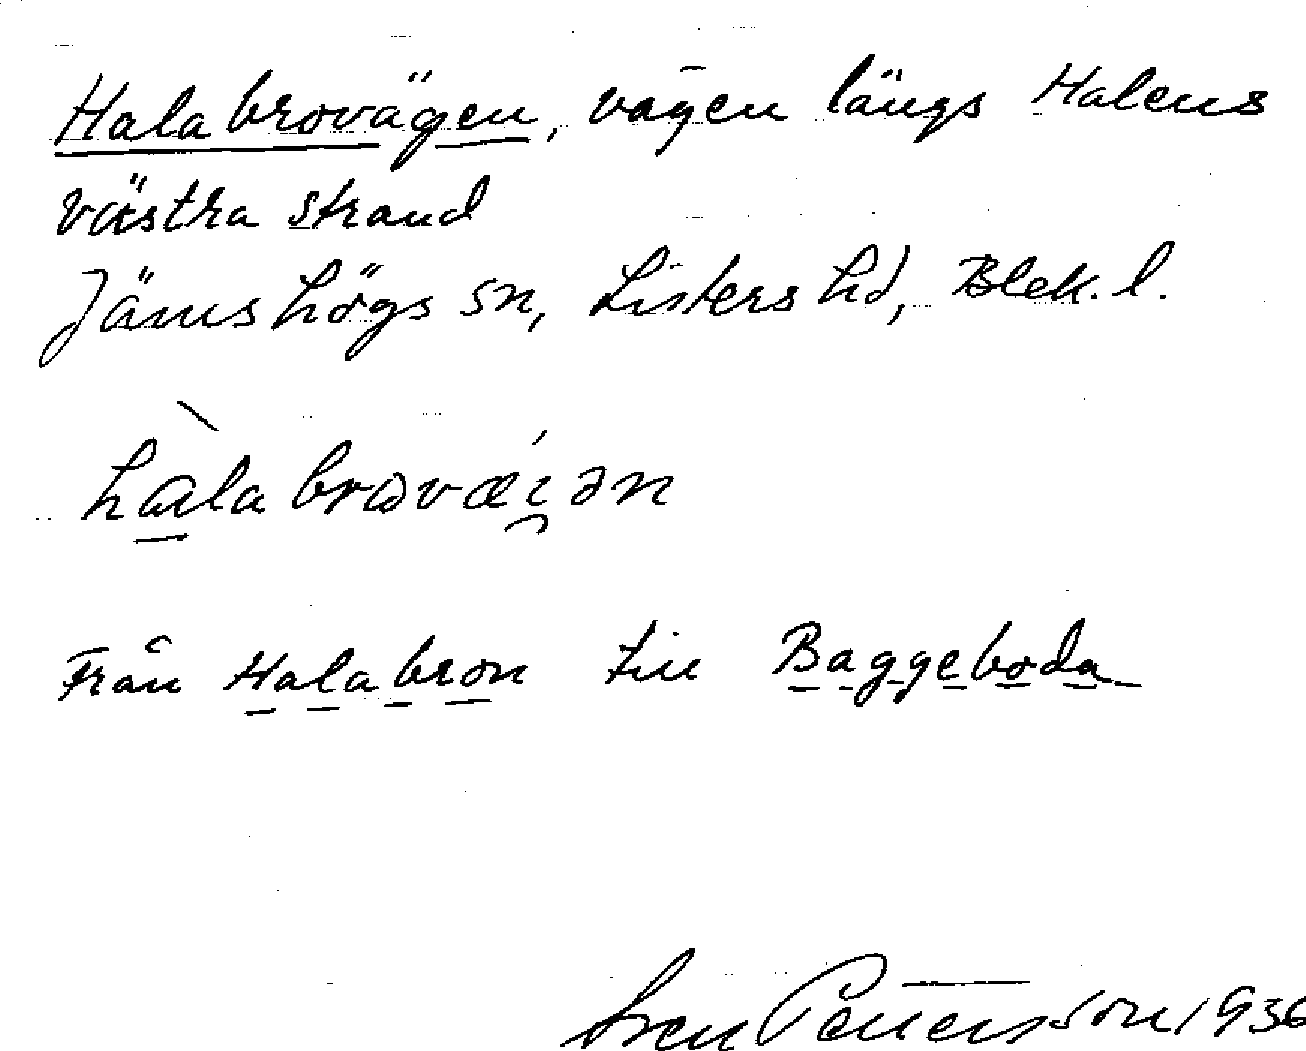 Halabrovägen, vägen längs Halens
västra strand
Jämshögs sn, Listers hd, Blek. l.
hàlabrovǽi̯ən
Från Halabron till Baggeboda
Sven Petersson 1936